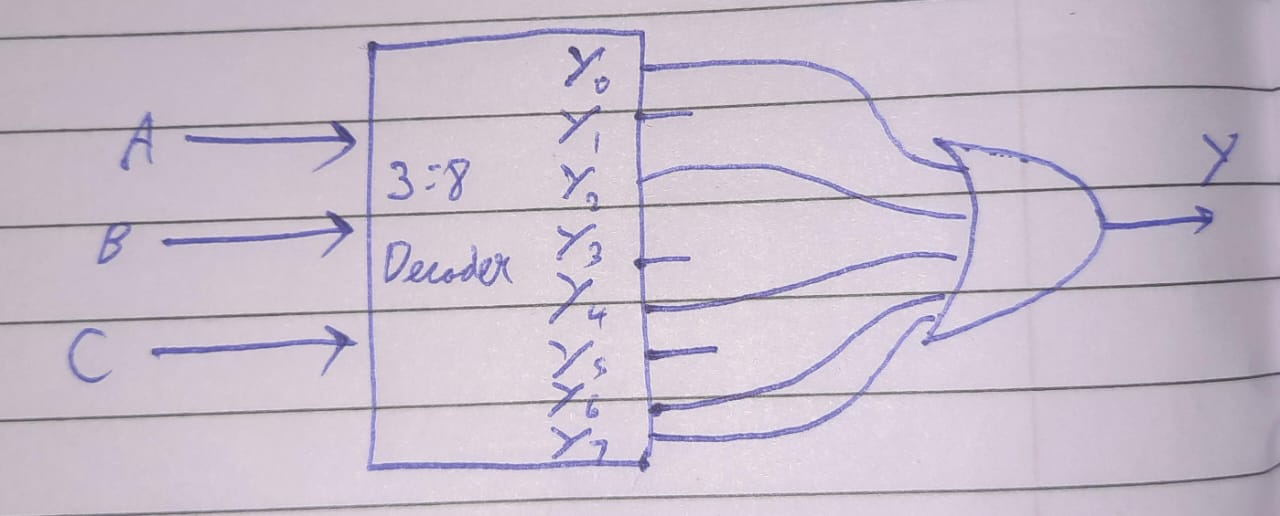 A
B
C
3:8
Decoder
Y₀
Y₁
Y₂
Y₃
Y₄
Y₅
Y₆
Y₇
Y